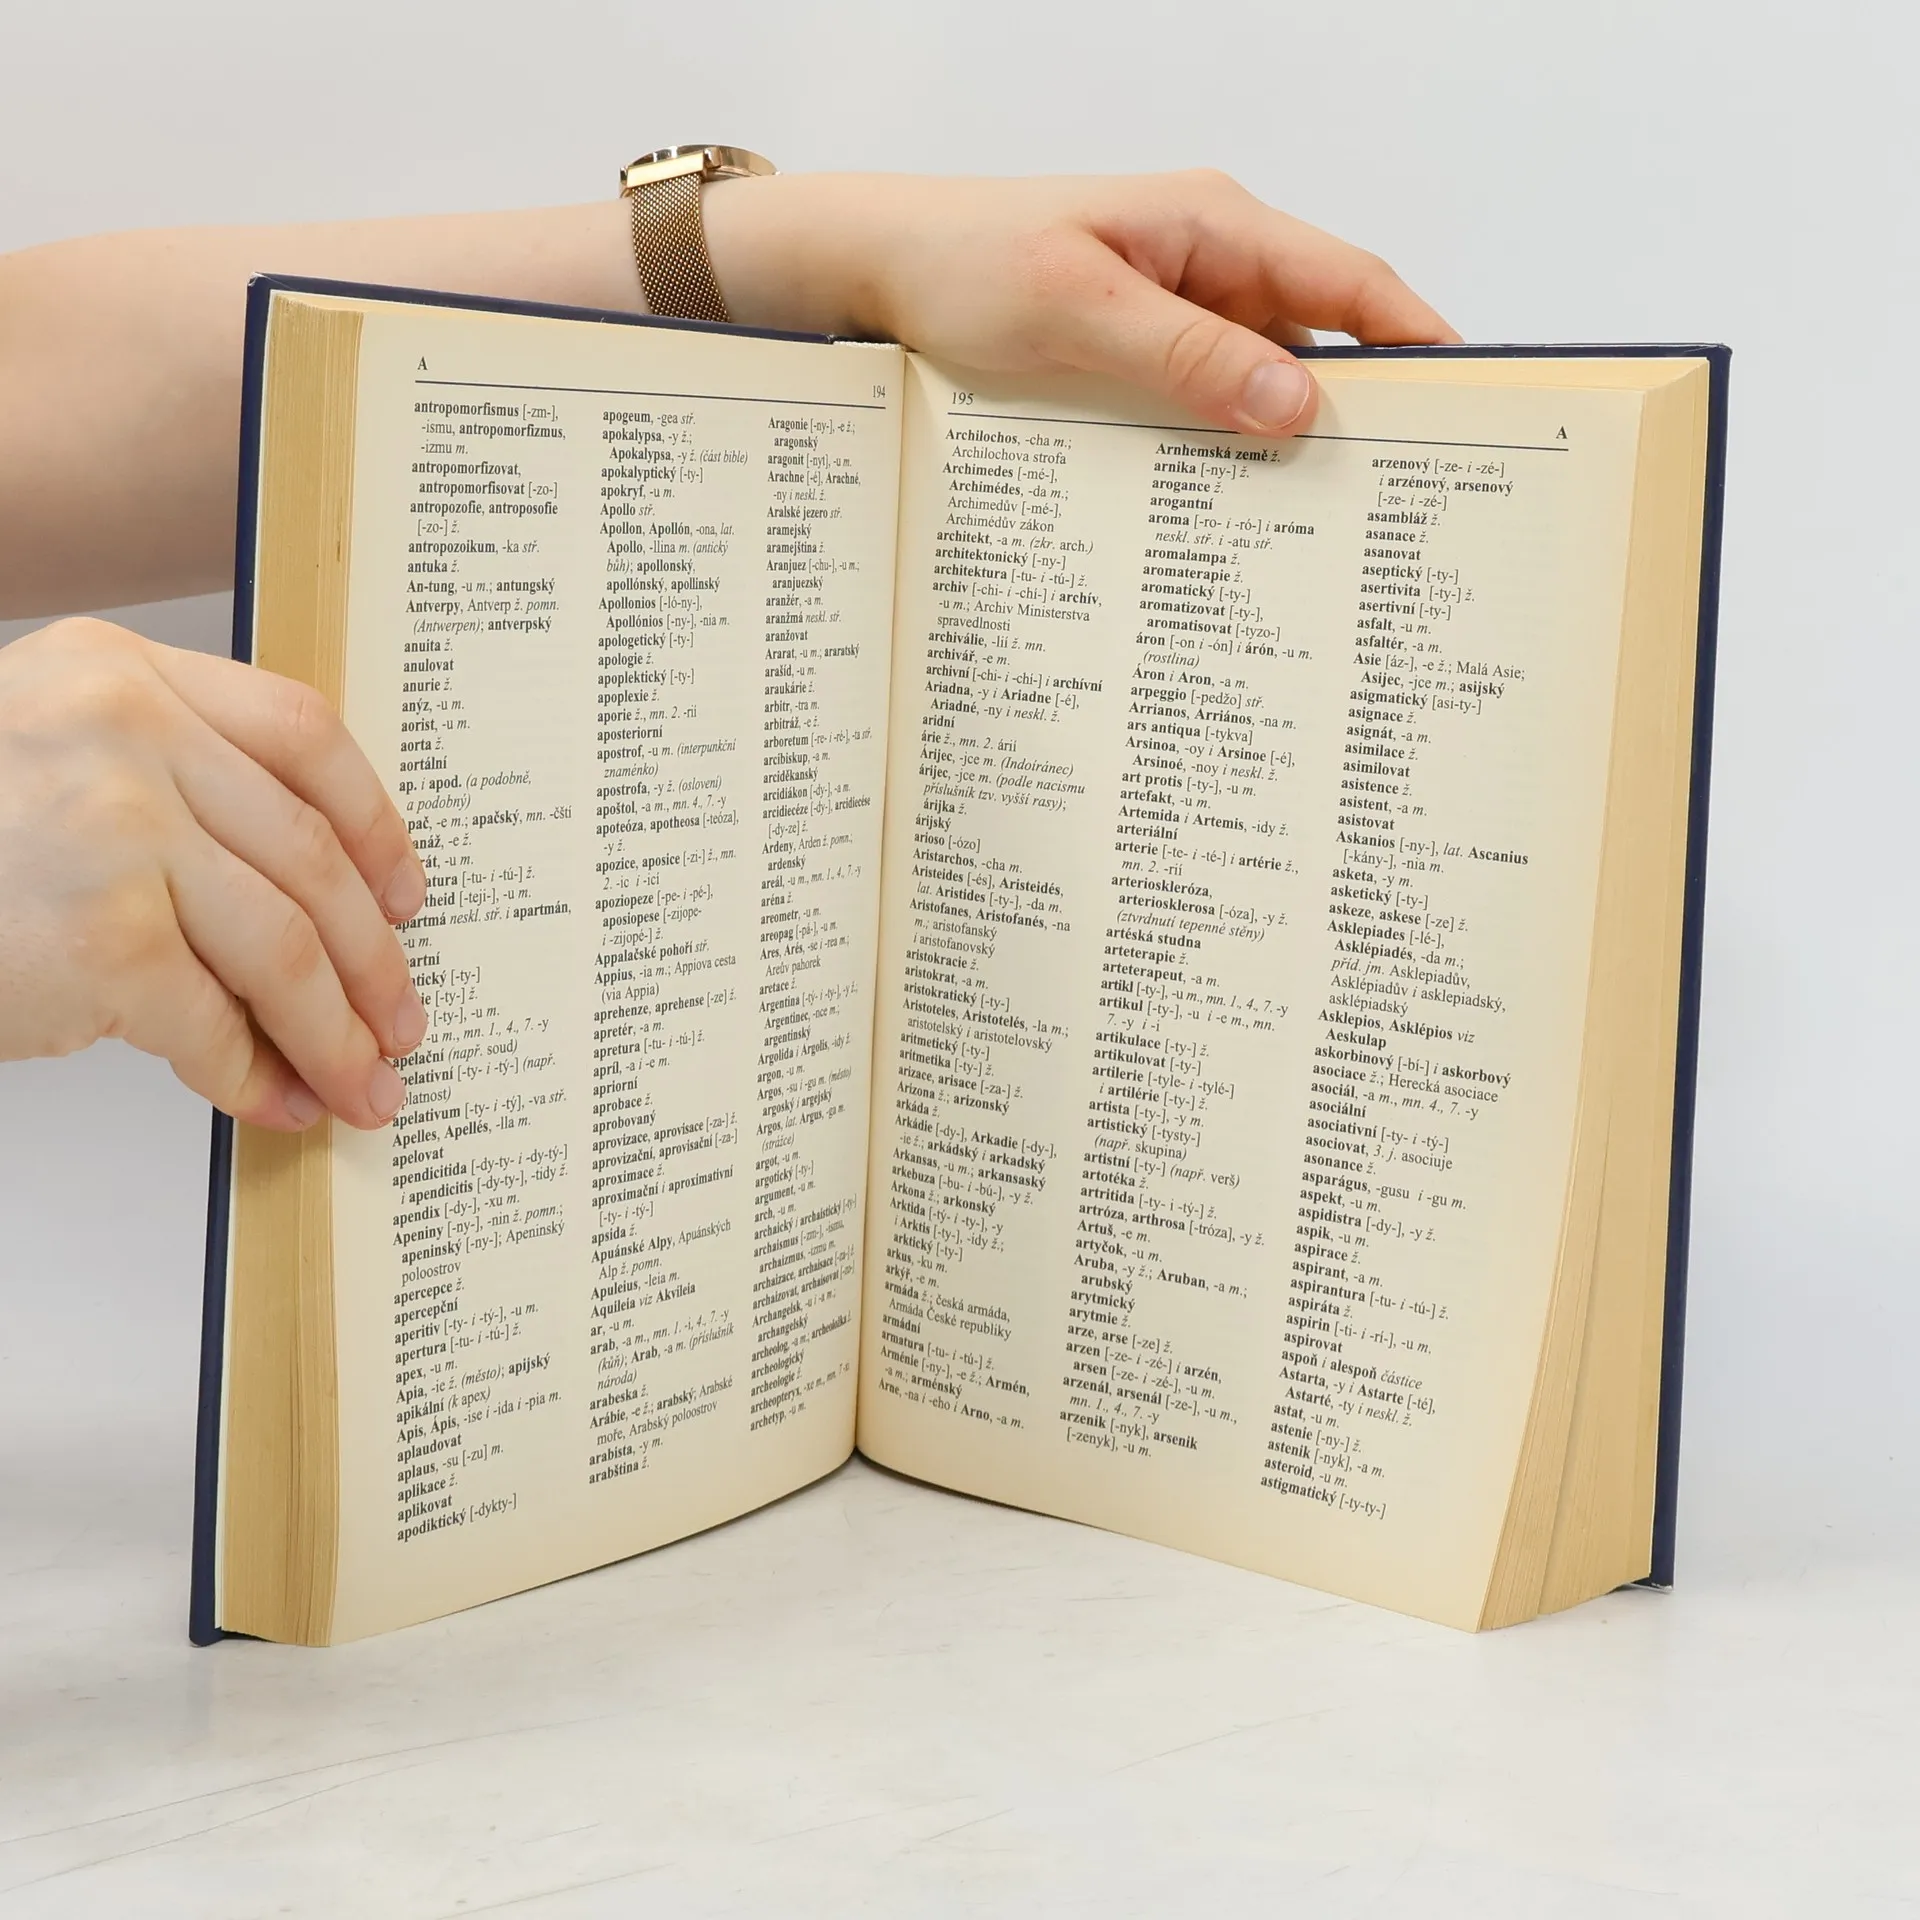 A
194
antropomorfismus [-zm-],
-ismu, antropomorfizmus,
-izmu m.
antropomorfizovat,
antropomorfisovat [-zo-]
antropozofie, antroposofie
[-zo-] ž.
antropozoikum, -ka stř.
antuka ž.
An-tung, -u m.; antungský
Antverpy, Antverp ž. pomn.
(Antwerpen); antverpský
anuita ž.
anulovat
anurie ž.
anýz, -u m.
aorist, -u m.
aorta ž.
aortální
ap. i apod. (a podobně,
a podobný)
pač, -e m.; apačský, mn. -čští
anáž, -e ž.
rát, -u m.
atura [-tu- i -tú-] ž.
theid [-tejí-], -u m.
apartmá neskl. stř. i apartmán,
-u m.
artní
tický [-ty-]
ie [-ty-] ž.
[-ty-], -u m.
-u m., mn. 1., 4., 7. -y
apelační (např. soud)
pelativní [-ty- i -tý-] (např.
platnost)
apelativum [-ty- i -tý], -va stř.
Apelles, Apellés, -lla m.
apelovat
apendicitida [-dy-ty- i -dy-tý-]
i apendicitis [-dy-ty-], -tidy ž.
apendix [-dy-], -xu m.
Apeniny [-ny-], -nin ž. pomn.;
apeninský [-ny-]; Apeninský
poloostrov
apercepce ž.
apercepční
aperitiv [-ty- i -tý-], -u m.
apertura [-tu- i -tú-] ž.
apex, -u m.
Apia, -ie ž. (město); apijský
apikální (k apex)
Apis, Ápis, -ise i -ida i -pia m.
aplaudovat
aplaus, -su [-zu] m.
aplikace ž.
aplikovat
apodiktický [-dykty-]
apogeum, -gea stř.
apokalypsa, -y ž.;
Apokalypsa, -y ž. (část bible)
apokalyptický [-ty-]
apokryf, -u m.
Apollo stř.
Apollon, Apollón, -ona, lat.
Apollo, -llina m. (antický
bůh); apollonský,
apollónský, apollinský
Apollonios [-ló-ny-],
Apollónios [-ny-], -nia m.
apologetický [-ty-]
apologie ž.
apoplektický [-ty-]
apoplexie ž.
aporie ž., mn. 2. -rií
aposteriorní
apostrof, -u m. (interpunkční
znaménko)
apostrofa, -y ž. (oslovení)
apoštol, -a m., mn. 4., 7. -y
apoteóza, apotheosa [-teóza],
-y ž.
apozice, aposice [-zi-] ž., mn.
2. -ic i -icí
apoziopeze [-pe- i -pé-],
aposiopese [-zijope-
i -zijopé-] ž.
Appalačské pohoří stř.
Appius, -ia m.; Appiova cesta
(via Appia)
aprehenze, aprehense [-ze] ž.
apretér, -a m.
apretura [-tu- i -tú-] ž.
apríl, -a i -e m.
apriorní
aprobace ž.
aprobovaný
aprovizace, aprovisace [-za-] ž.
aprovizační, aprovisační [-za-]
aproximace ž.
aproximační i aproximativní
[-ty- i -tý-]
apsida ž.
Apuánské Alpy, Apuánských
Alp ž. pomn.
Apuleius, -leia m.
Aquileia viz Akvileia
ar, -u m.
arab, -a m., mn. 1. -i, 4., 7. -y
(kůň); Arab, -a m. (příslušník
národa)
arabeska ž.
Arábie, -e ž.; arabský; Arabské
moře, Arabský poloostrov
arabista, -y m.
arabština ž.
Aragonie [-ny-], -e ž.;
aragonský
aragonit [-nyt], -u m.
Arachne [-é], Arachné,
-ny i neskl. ž.
Aralské jezero stř.
aramejský
aramejština ž.
Aranjuez [-chu-], -u m.;
aranjuezský
aranžér, -a m.
aranžmá neskl. stř.
aranžovat
Ararat, -u m.; araratský
arašíd, -u m.
araukárie ž.
arbitr, -tra m.
arbitráž, -e ž.
arboretum [-re- i -ré-], -ta stř.
arcibiskup, -a m.
arciděkanský
arcidiákon [-dy-], -a m.
arcidiecéze [-dy-], arcidiecése
[-dy-ze] ž.
Ardeny, Arden ž. pomn.;
ardenský
areál, -u m., mn. 1., 4., 7. -y
aréna ž.
areometr, -u m.
areopag [-pá-], -u m.
Ares, Arés, -se i -rea m.;
Areův pahorek
aretace ž.
Argentina [-tý- i -ty-], -y ž.;
Argentinec, -nce m.;
argentinský
Argolida i Argolis, -idy ž.
argon, -u m.
Argos, -su i -gu m. (město)
argoský i argejský
Argos, lat. Argus, -ga m.
(strážce)
argot, -u m.
argotický [-ty-]
argument, -u m.
arch, -u m.
archaický i archaistický [-ty-]
archaismus [-zm-], -ismu,
archaizmus, -izmu m.
archaizace, archaisace [-za-] ž.
archaizovat, archaisovat [-zo-]
Archangelsk, -u i -a m.;
archangelský
archeolog, -a m.; archeoložka ž.
archeologický
archeologie ž.
archeopteryx, -xe m., mn. 7. -xi
archetyp, -u m.
195
A
Archilochos, -cha m.;
Archilochova strofa
Archimedes [-mé-],
Archimédes, -da m.;
Archimedův [-mé-],
Archimédův zákon
architekt, -a m. (zkr. arch.)
architektonický [-ny-]
architektura [-tu- i -tú-] ž.
archiv [-chi- i -chí-] i archív,
-u m.; Archiv Ministerstva
spravedlnosti
archiválie, -lií ž. mn.
archivář, -e m.
archivní [-chi- i -chí-] i archívní
Ariadna, -y i Ariadne [-é],
Ariadné, -ny i neskl. ž.
aridní
árie ž., mn. 2. árií
Árijec, -jce m. (Indoíránec)
árijec, -jce m. (podle nacismu
příslušník tzv. vyšší rasy);
árijka ž.
árijský
arioso [-ózo]
Aristarchos, -cha m.
Aristeides [-és], Aristeidés,
lat. Aristides [-ty-], -da m.
Aristofanes, Aristofanés, -na
m.; aristofanský
i aristofanovský
aristokracie ž.
aristokrat, -a m.
aristokratický [-ty-]
Aristoteles, Aristotelés, -la m.;
aristotelský i aristotelovský
aritmetický [-ty-]
aritmetika [-ty-] ž.
arizace, arisace [-za-] ž.
Arizona ž.; arizonský
arkáda ž.
Arkádie [-dy-], Arkadie [-dy-],
-ie ž.; arkádský i arkadský
Arkansas, -u m.; arkansaský
arkebuza [-bu- i -bú-], -y ž.
Arkona ž.; arkonský
Arktida [-tý- i -ty-], -y
i Arktis [-ty-], -idy ž.;
arktický [-ty-]
arkus, -ku m.
arkýř, -e m.
armáda ž.; česká armáda,
Armáda České republiky
armádní
armatura [-tu- i -tú-] ž.
Arménie [-ny-], -e ž.; Armén,
-a m.; arménský
Arne, -na i -eho i Arno, -a m.
Arnhemská země ž.
arnika [-ny-] ž.
arogance ž.
arogantní
aroma [-ro- i -ró-] i aróma
neskl. stř. i -atu stř.
aromalampa ž.
aromaterapie ž.
aromatický [-ty-]
aromatizovat [-ty-],
aromatisovat [-tyzo-]
áron [-on i -ón] i árón, -u m.
(rostlina)
Áron i Aron, -a m.
arpeggio [-pedžo] stř.
Arrianos, Arriános, -na m.
ars antiqua [-tykva]
Arsinoa, -oy i Arsinoe [-é],
Arsinoé, -noy i neskl. ž.
art protis [-ty-], -u m.
artefakt, -u m.
Artemida i Artemis, -idy ž.
arteriální
arterie [-te- i -té-] i artérie ž.,
mn. 2. -rií
arterioskleróza,
arteriosklerosa [-óza], -y ž.
(ztvrdnutí tepenné stěny)
artéská studna
arteterapie ž.
arteterapeut, -a m.
artikl [-ty-], -u m., mn. 1., 4., 7. -y
artikul [-ty-], -u i -e m., mn.
7. -y i -i
artikulace [-ty-] ž.
artikulovat [-ty-]
artilerie [-tyle- i -tylé-]
i artilérie [-ty-] ž.
artista [-ty-], -y m.
artistický [-tysty-]
(např. skupina)
artistní [-ty-] (např. verš)
artotéka ž.
artritida [-ty- i -tý-] ž.
artróza, arthrosa [-tróza], -y ž.
Artuš, -e m.
artyčok, -u m.
Aruba, -y ž.; Aruban, -a m.;
arubský
arytmický
arytmie ž.
arze, arse [-ze] ž.
arzen [-ze- i -zé-] i arzén,
arsen [-ze- i -zé-], -u m.
arzenál, arsenál [-ze-], -u m.,
mn. 1., 4., 7. -y
arzenik [-nyk], arsenik
[-zenyk], -u m.
arzenový [-ze- i -zé-]
i arzénový, arsenový
[-ze- i -zé-]
asambláž ž.
asanace ž.
asanovat
aseptický [-ty-]
asertivita [-ty-] ž.
asertivní [-ty-]
asfalt, -u m.
asfaltér, -a m.
Asie [áz-], -e ž.; Malá Asie;
Asijec, -jce m.; asijský
asigmatický [asi-ty-]
asignace ž.
asignát, -a m.
asimilace ž.
asimilovat
asistence ž.
asistent, -a m.
asistovat
Askanios [-ny-], lat. Ascanius
[-kány-], -nia m.
asketa, -y m.
asketický [-ty-]
askeze, askese [-ze] ž.
Asklepiades [-lé-],
Asklépiadés, -da m.;
příd. jm. Asklepiadův,
Asklépiadův i asklepiadský,
asklépiadský
Asklepios, Asklépios viz
Aeskulap
askorbinový [-bí-] i askorbový
asociace ž.; Herecká asociace
asociál, -a m., mn. 4., 7. -y
asociální
asociativní [-ty- i -tý-]
asociovat, 3. j. asociuje
asonance ž.
asparágus, -gusu i -gu m.
aspekt, -u m.
aspidistra [-dy-], -y ž.
aspik, -u m.
aspirace ž.
aspirant, -a m.
aspirantura [-tu- i -tú-] ž.
aspiráta ž.
aspirin [-ti- i -rí-], -u m.
aspirovat
aspoň i alespoň částice
Astarta, -y i Astarte [-té],
Astarté, -ty i neskl. ž.
astat, -u m.
astenie [-ny-] ž.
astenik [-nyk], -a m.
asteroid, -u m.
astigmatický [-ty-ty-]